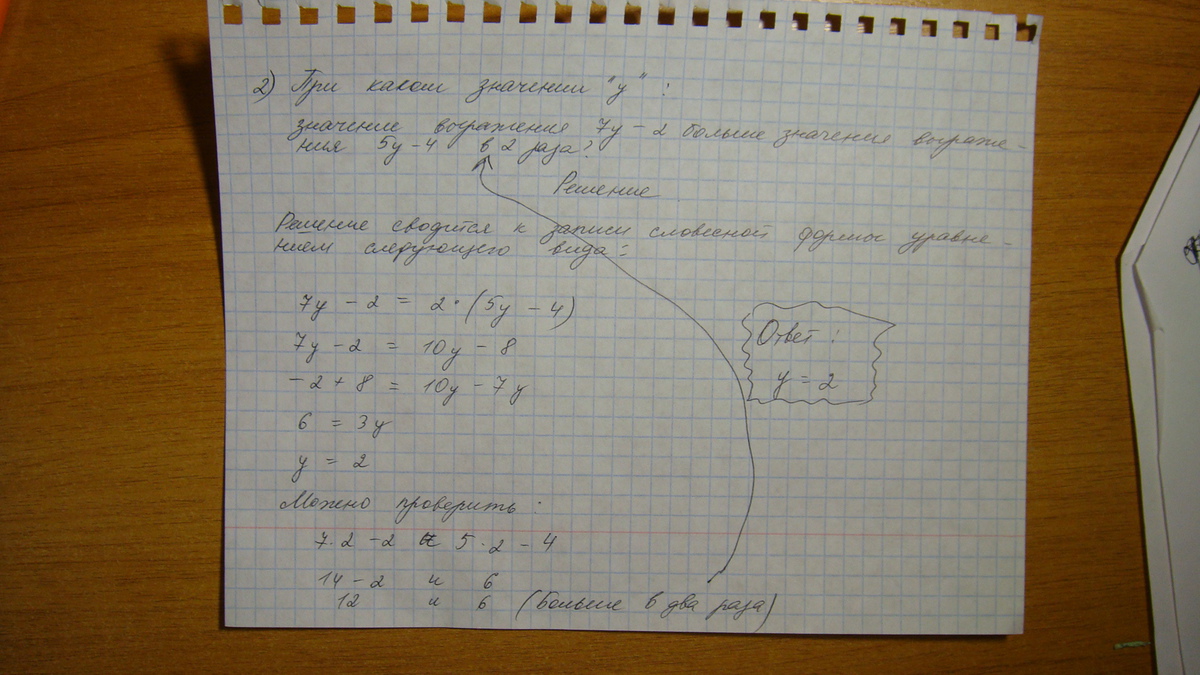 2) При каком значении "у" :
значение выражения 7у - 2 больше значения выраже-
ния 5у - 4 в 2 раза?
Решение
Решение сводится к записи словесной формы уравне-
нием следующего вида:
7у - 2 = 2·(5у - 4)
7у - 2 = 10у - 8
-2 + 8 = 10у - 7у
6 = 3у
у = 2
Ответ:
у = 2
Можно проверить:
7·2 - 2 и 5·2 - 4
14 - 2 и 6
12 и 6 (больше в два раза)